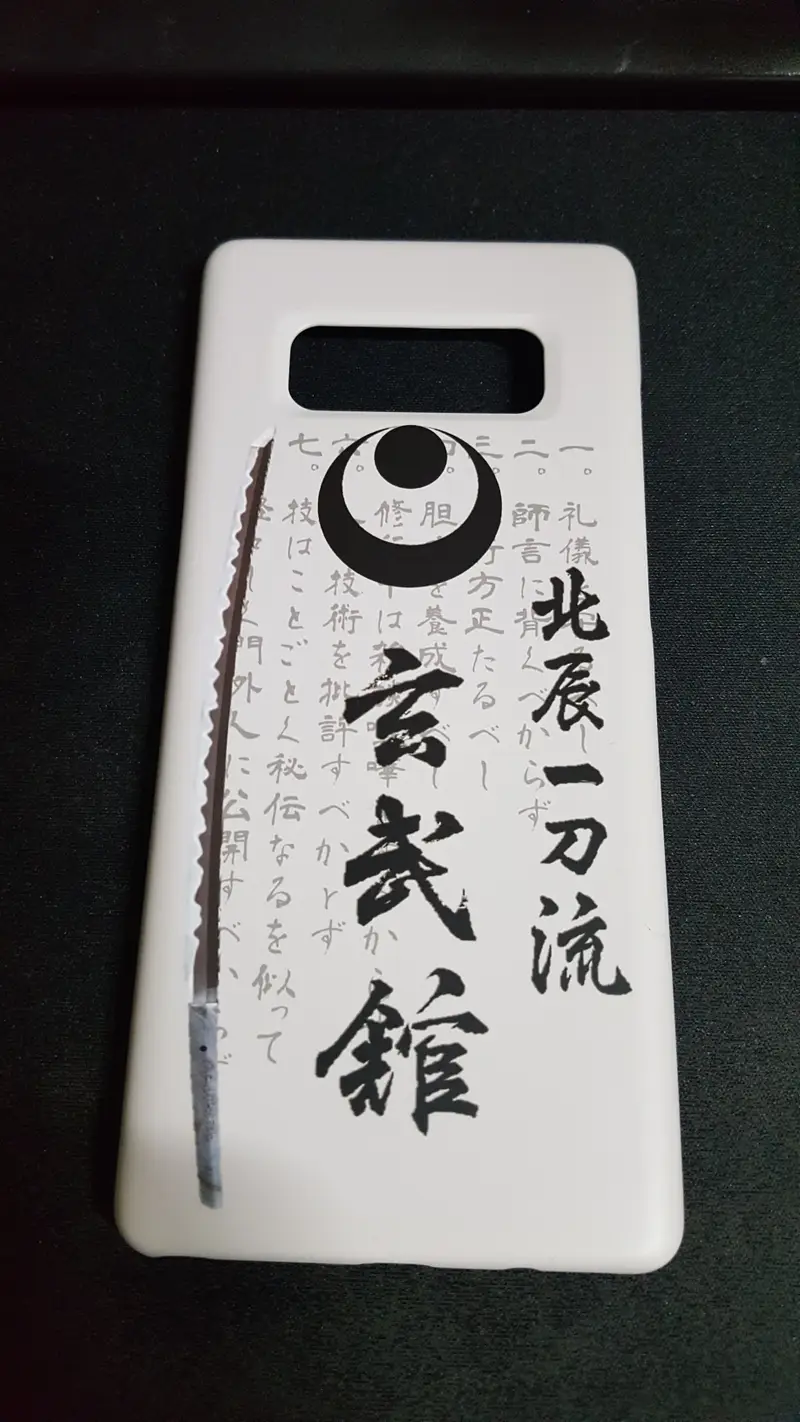 北辰一刀流
玄武館
一。礼儀
二。師言に背くべからず
三。行方正たるべし
胆を養成すべし
修は
六。技術を批許すべからず
七。技はことごとく秘伝なるを似って
門外人に公開すべ